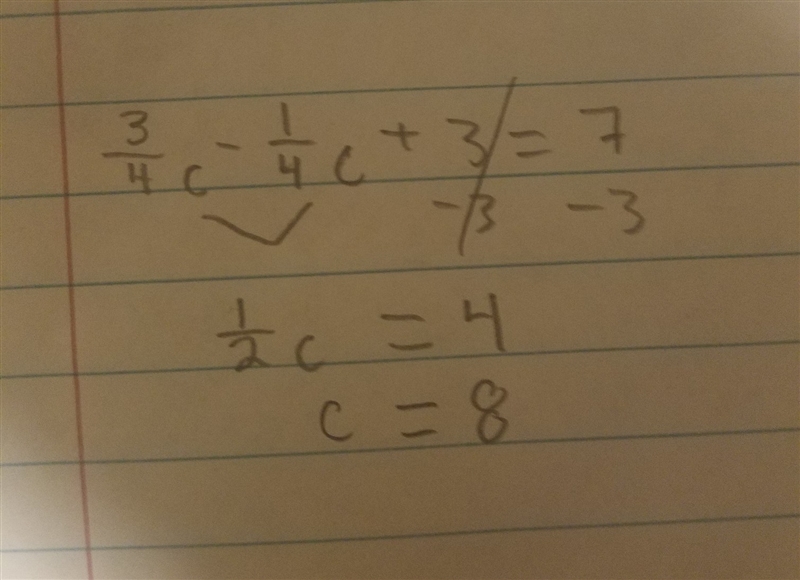 3/4 c - 1/4 c + 3 = 7
-3 -3
1/2 c = 4
c = 8